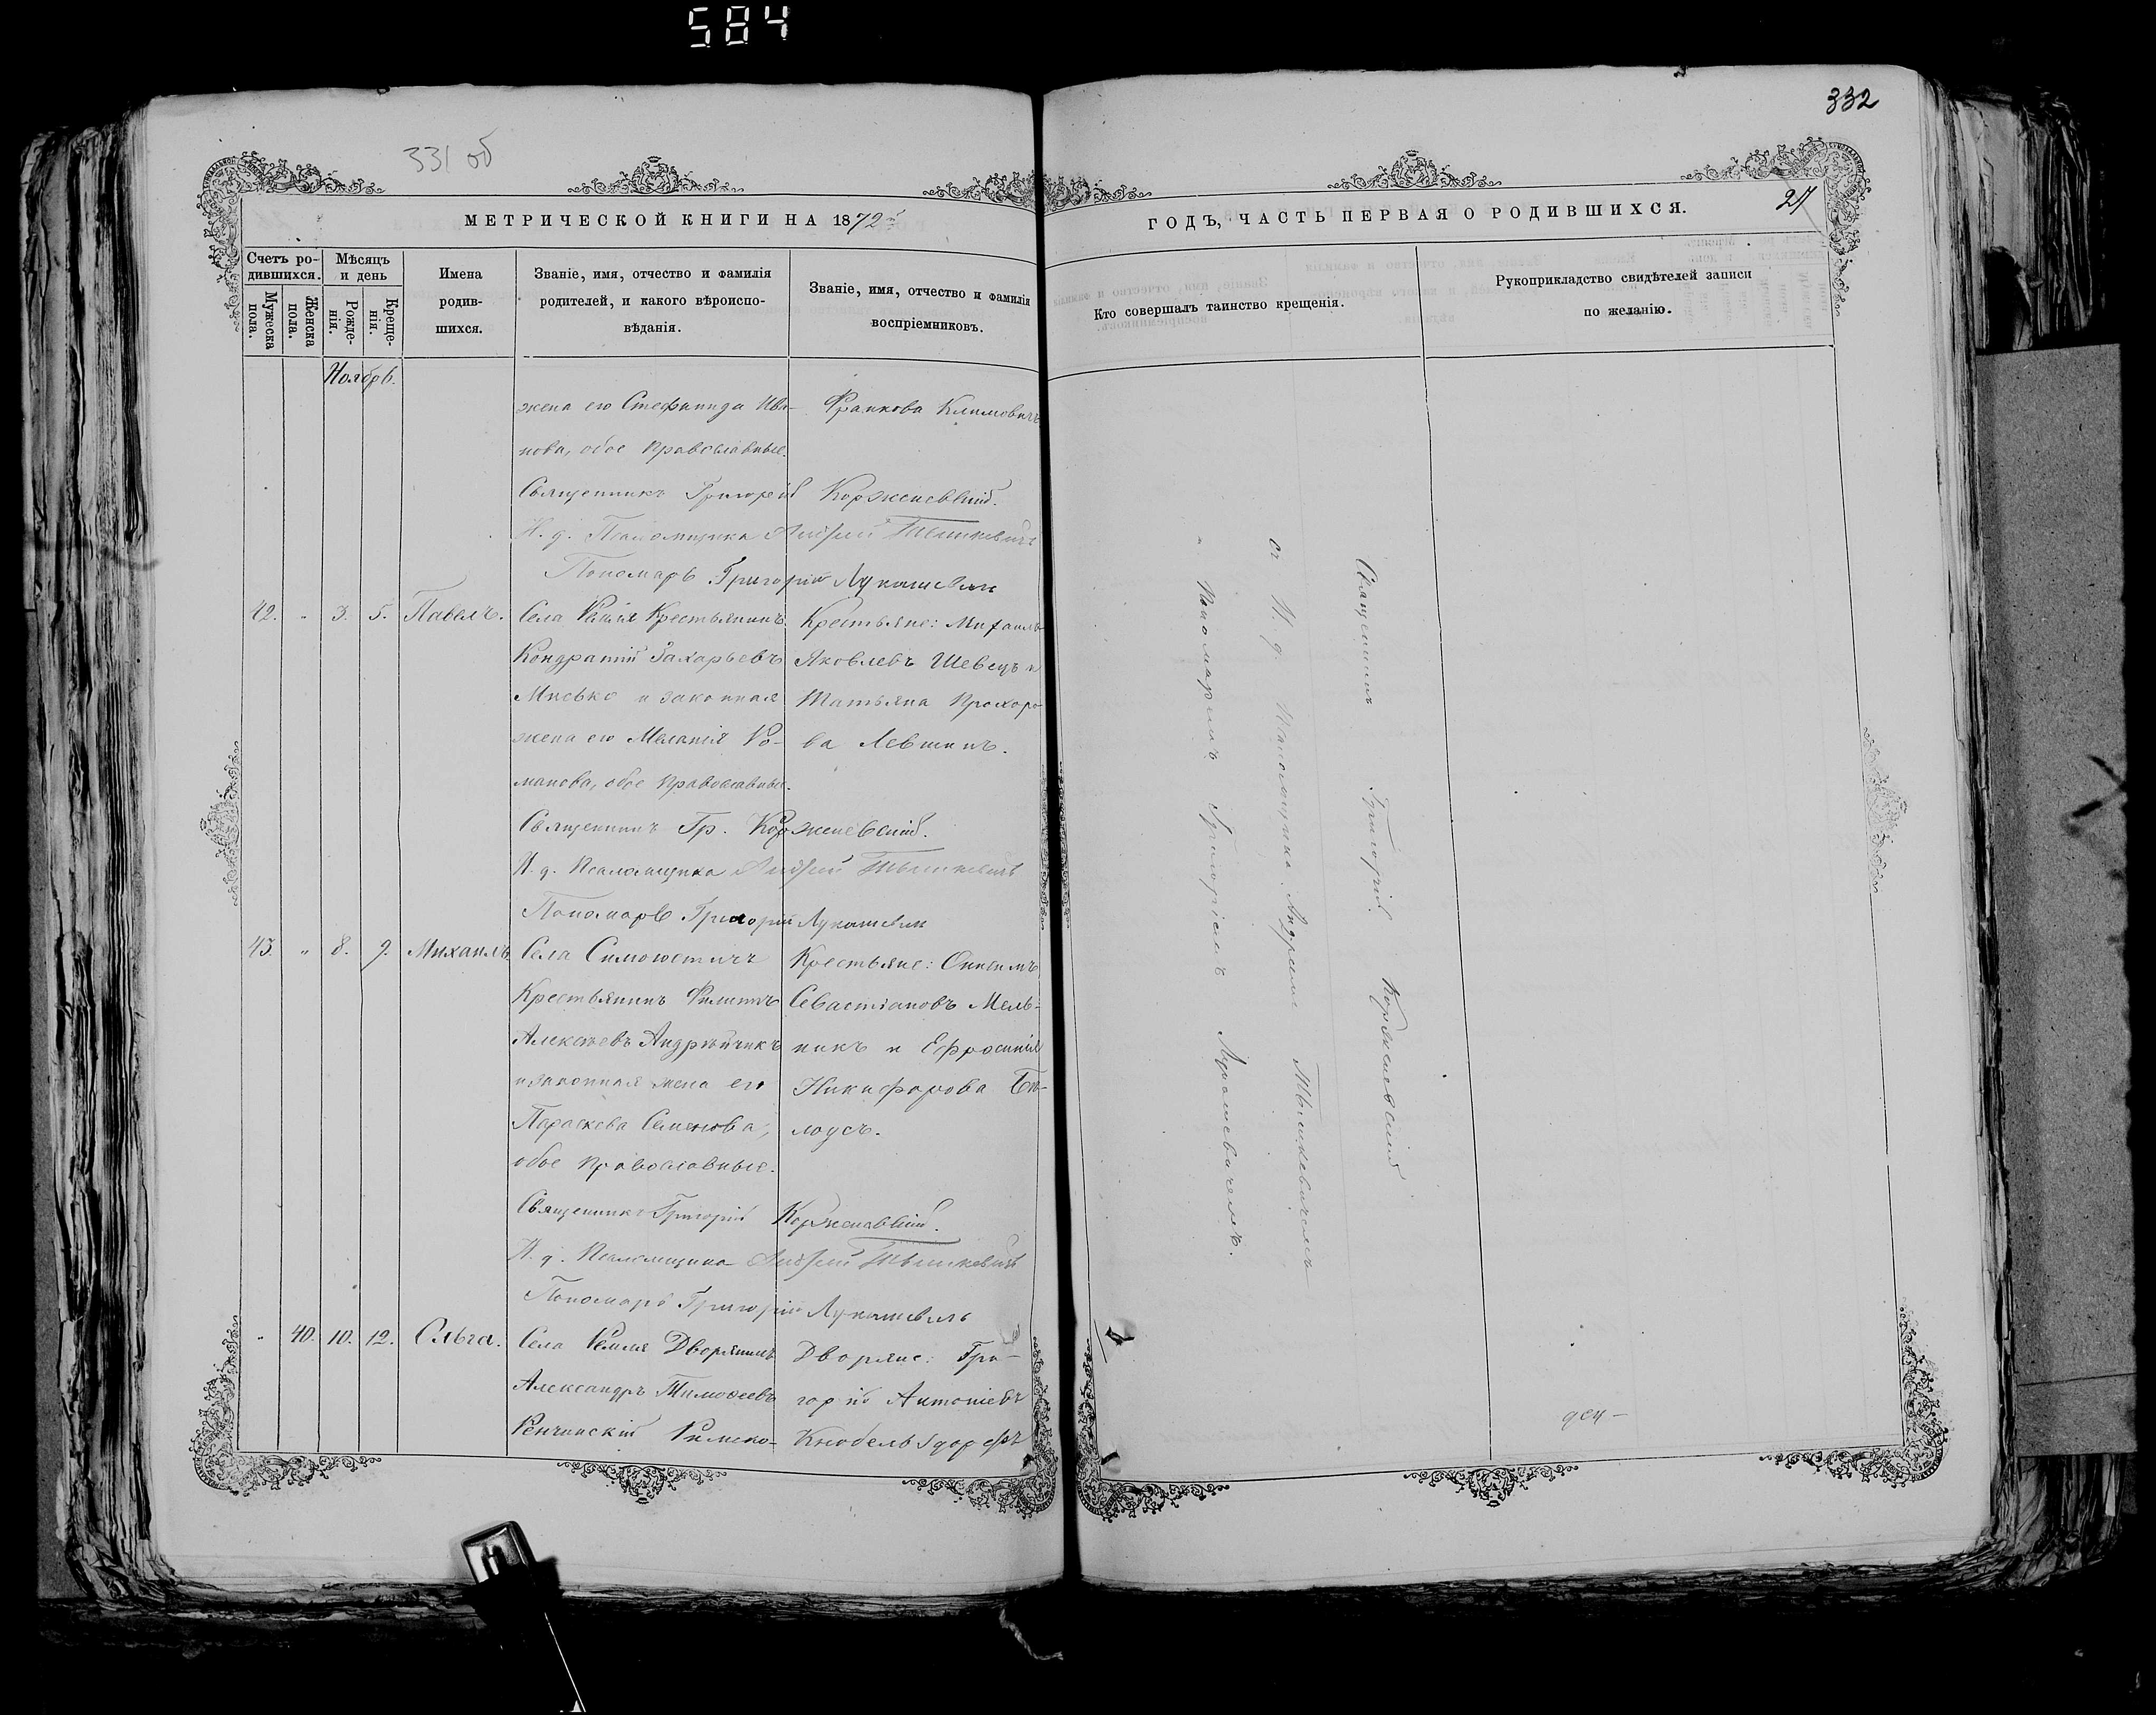 584
332
331 об
27
МЕТРИЧЕСКОЙ КНИГИ НА 1872й
ГОДЪ, ЧАСТЬ ПЕРВАЯ О РОДИВШИХСЯ.
Счетъ родившихся.
Мужеска пола.
Женска пола.
Мѣсяцъ и день
Рожденія.
Крещенія.
Имена родившихся.
Званіе, имя, отчество и фамилія родителей, и какого вѣроисповѣданія.
Званіе, имя, отчество и фамилія воспріемниковъ.
Кто совершалъ таинство крещенія.
Рукоприкладство свидѣтелей записи по желанію.
Ноябрь.
жена его Стефанида Ива-
нова, обое православные.
Франкова Климовичъ
Священникъ Григорій Корженевскій.
И. д. Псаломщика Андрей Тышкевичъ
Пономарь Григорій Лукашевич
42. " 3. 5. Павелъ.
Села Крестьянинъ
Кондратій Захарьевъ
Мисько и законная
жена его Меланія Ро-
манова, обое православные.
Крестьяне: Михаилъ
Яковлевъ Шевецъ и
Татьяна Прохоро-
ва Левшинъ.
Священникъ Гр. Корженевскій.
И. д. Псаломщика Андрей Тышкевичъ
Пономарь Григорій Лукашевич
43. " 8. 9. Михаилъ.
Села
Крестьянинъ Филиппъ
Алексѣевъ Андрѣйчикъ
и законная жена его
Параскева Семенова,
обое православные.
Крестьяне: Онисимъ
Севастіановъ Мель-
никъ и Ефросинія
Никифорова Бѣ-
лоусъ.
Священникъ Григорій Корженевскій.
И. д. Псаломщика Андрей Тышкевичъ
Пономарь Григорій Лукашевичъ
" 40. 10. 12. Ольга.
Села Дворянинъ
Александръ Тимофеевъ
Ренчинскій Римско-
Дворяне: Гри-
горій Антоніевъ
Кнобельсдорфъ
Священникъ Григорій Корженевскій
съ И. д. Псаломщика Андреемъ Тышкевичемъ
и Пономаремъ Григоріемъ Лукашевичемъ.